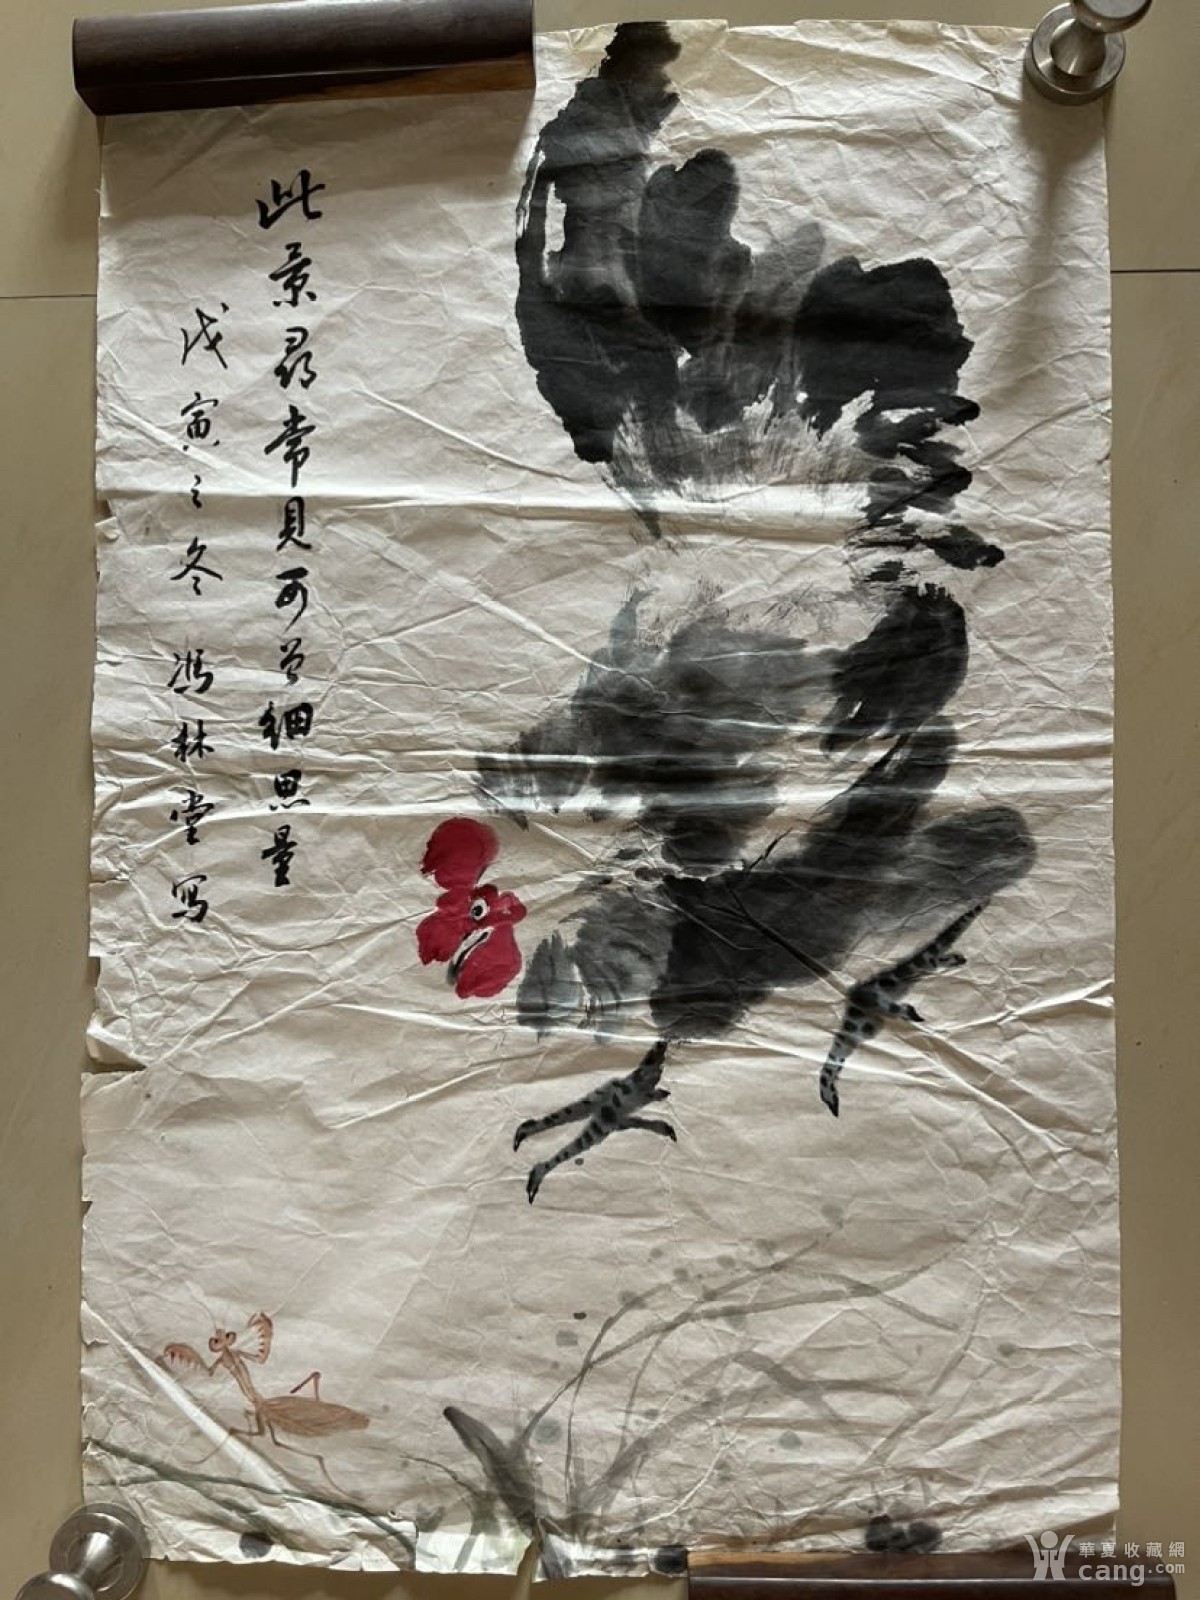 此景尋常見可曾細思量
戊寅之冬 馮林堂寫
華夏收藏網
cang.com